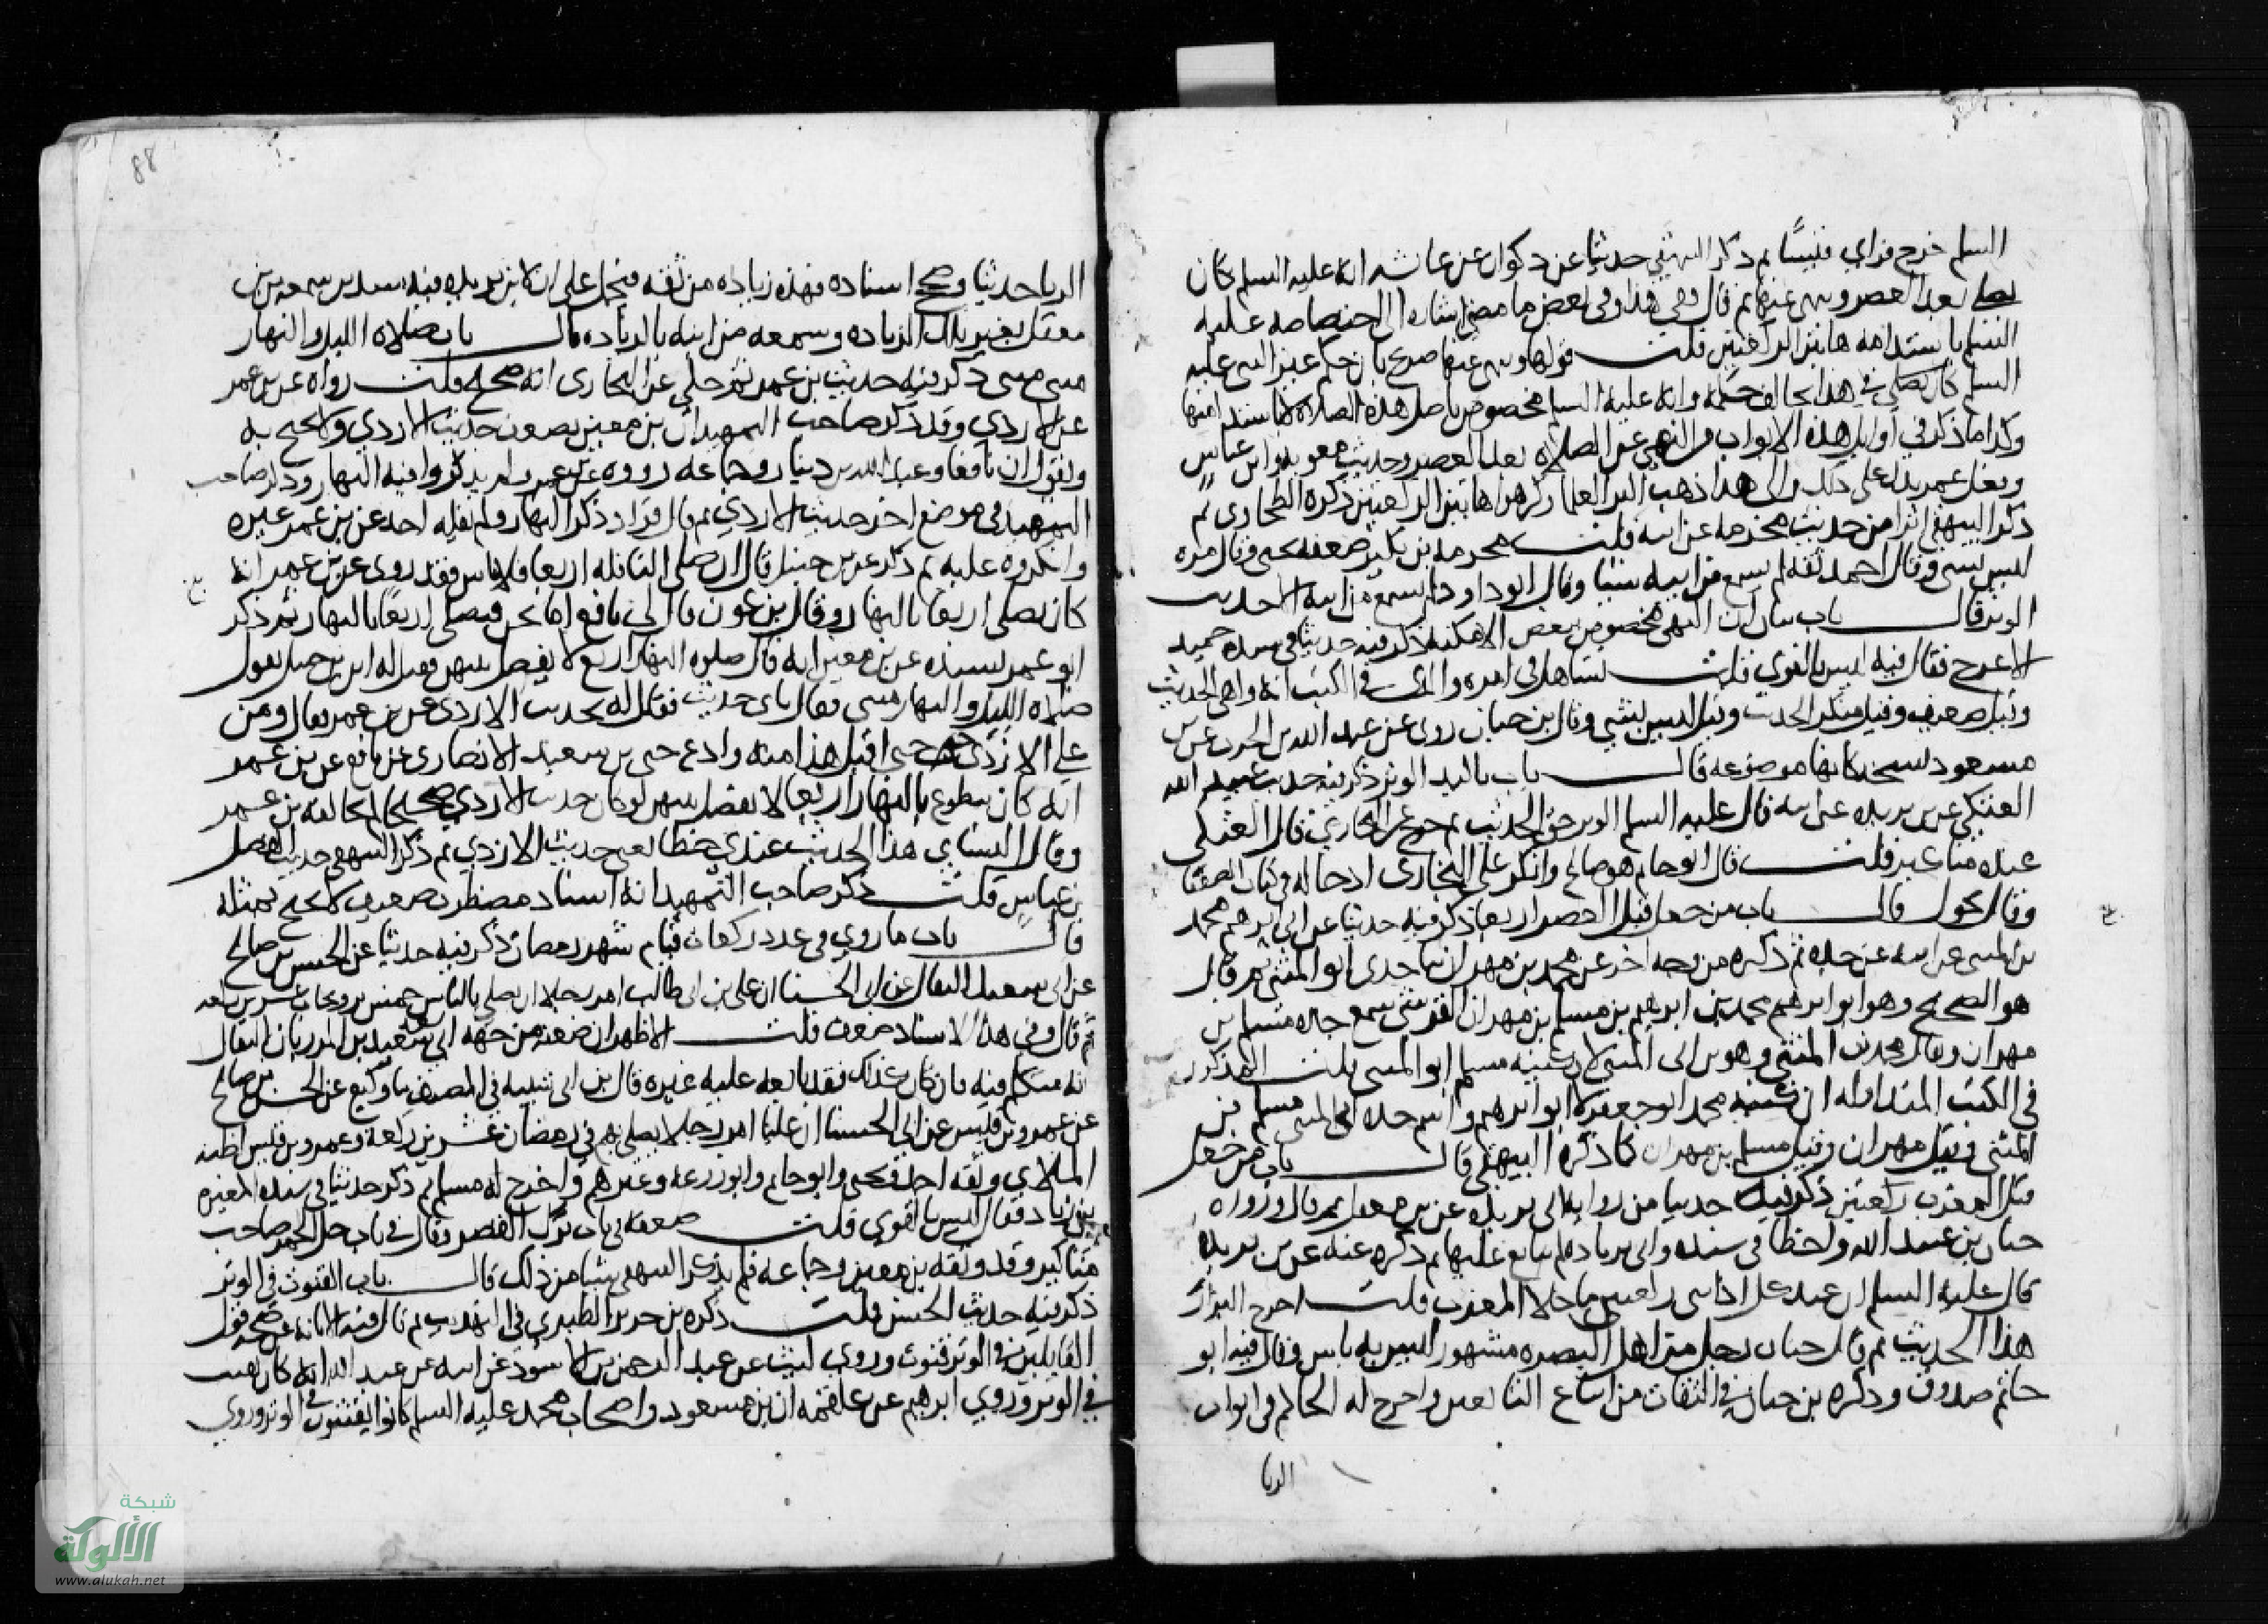 السلم خرج فراي قيسًا ثم ذكر البيهقي حديثا عن ذكوان عن عائشه انه عليه السلم كان
يصلي بعد العصر وينهى عنها ثم قال ففي هذا وفي بعض ما مضى اشاره الى اختصاصه عليه
السلم باستدامه هاتين الركعتين قلت قولها وينهى عنها صريح بان حكم غير النبي عليه
السلم كان يصلي في هذا مخالف حكمه وانه عليه السلم مخصوص باصل هذه الصلاة لا باستدامتها
وكذا ما ذكر في اوايل هذه الابواب من النهي عن الصلاة بعد العصر وحديث معويه وابن عباس
وفعل عمر يدل على ذلك والى هذا ذهب اكثر العلما وكرهوا هاتين الركعتين ذكره الطحاوى ثم
ذكر البيهقي اثرا من حديث مخرمه عن ابيه قلت مخرمه بن بكير ضعفه يحيى وقال مره
ليس بشي وقال احمد ثقه لم يسمع من ابيه شيئا وقال ابو داود لم يسمع من ابيه الا حديث
الوتر قال باب بيان ان النهي مخصوص ببعض الامكنه ذكر فيه حديثا في سنده حميد
الاعرج فقال فيه ليس بالقوي قلت تساهل في امره والذي في الكتب انه واهي الحديث
وقيل ضعيف وقيل منكر الحديث وقيل ليس بشي وقال بن حبان روى عن عبد الله بن الحرث عن بن
مسعود نسخه كانها موضوعه قال باب تاكيد الوتر ذكر فيه حديث عبيد الله
العتكي عن بن بريده عن ابيه قال عليه السلم الوتر حق الحديث ثم خرج عن البخاري قال العتكي
عنده مناكير قلت قال ابو حاتم هو صالح وانكر على البخارى ادخاله في كتاب الضعفا
وقال يحول قال باب من جعل قبل العصر اربعا ذكر فيه حديثا عن ابي ابرهيم محمد
بن المثنى عن ابيه عن جده ثم ذكره من وجه اخر عن محمد بن مهران ثنا جدى ابو المثنى ثم قال
هو الصحيح وهو ابو ابرهيم محمد بن ابرهيم بن مسلم بن مهران القرشي سمع جده مسلم بن
مهران ويقال محمد بن المثنى وهو بن ابي المثنى لان كنيه مسلم ابو المثنى قلت المذكور
في الكتب المتداوله ان كنيه محمد ابو جعفر لا ابو ابرهيم واسم جده ابي المثنى مسلم بن
المثنى وقيل مهران وقيل مسلم بن مهران كما ذكره البيهقي قال باب من جعل
قبل المغرب ركعتين ذكر فيه حديثا من روايه ابي بريده عن بن مغفل ثم قال ورواه
حبان بن عبيد الله واخطا في سنده واتى بزياده لم يتابع عليها ثم ذكره عنه عن بن بريده
قال عليه السلم ان عند كل اذانين ركعتين ما خلا المغرب قلت اخرج البزار
هذا الحديث ثم قال حبان رجل من اهل البصره مشهور ليس به باس وقال فيه ابو
حاتم صدوق وذكره بن حبان في الثقات من اتباع التابعين واخرج له الحاكم في ابواب
الربا
88
الربا حديثا وصحح اسناده فهذه زياده من ثقه فيحمل على ان لابن بريده فيه سندين سمعه من بن
مغفل بغير تلك الزياده وسمعه من ابيه بالزياده قال باب صلاه الليل والنهار
مثنى مثنى ذكر فيه حديث بن عمر ثم حكى عن البخارى انه صححه قلت رواه عن بن عمر
علي الازدي وقد ذكر صاحب التمهيد ان بن معين يضعف حديث الازدي ولا يحتج به
ويقول ان نافعا وعبد الله بن دينار وجماعه رووه عن بن عمر ولم يذكروا فيه النهار وذكر صاحب
التمهيد في موضع اخر حديث الازدي ثم قال فزاد ذكر النهار ولم يقله احد عن بن عمر غيره
وانكروه عليه ثم ذكر عن بن حنبل قال ان صلى النافله اربعا فلا باس فقد روى عن بن عمر انه
كان يصلي اربعا بالنهار وقال بن عون قال لي نافع اما نحن فنصلي اربعًا بالنهار ثم ذكر
ابو عمر بسنده عن بن معين انه قال صلوه النهار اربع لا يفصل بينهن فقيل له ان بن حنبل يقول
صلاه الليل والنهار مثنى فقال باي حديث فقال له بحديث الازدى عن بن عمر فقال ومن
علي الازدى حتى اقبل هذا منه وادع يحيى بن سعيد الانصارى عن نافع عن بن عمر
انه كان يتطوع بالنهار اربعا لا يفصل بينهن لو كان حديث الازدي صحيحا لم يخالفه بن عمر
وقال النسائي هذا الحديث عندي خطا يعني حديث الازدي ثم ذكر البيهقي حديث الفضل
بن عباس قلت ذكر صاحب التمهيد انه اسناد مضطرب ضعيف لا يحتج بمثله
قال باب ما روي في عدد ركعات قيام شهر رمضان ذكر فيه حديثا عن الحسن بن صالح
عن ابي سعيد البقال عن ابي الحسنا ان علي بن ابي طالب امر رجلا ان يصلي بالناس خمس ترويحات عشرين ركعه
ثم قال وفي هذا الاسناد ضعف قلت الاظهر ان ضعفه من جهه ابي سعد سعيد بن المرزبان البقال
انه متكلم فيه فان كان كذلك فقد تابعه عليه غيره قال بن ابي شيبه في المصنف ثنا وكيع عن الحسن بن صالح
عن عمرو بن قيس عن ابي الحسنا ان عليا امر رجلا يصلي بهم في رمضان عشرين ركعة وعمرو بن قيس اظنه
الملاي وثقه احمد ويحيى وابو حاتم وابو زرعه وغيرهم واخرج له مسلم ثم ذكر حديثا في سنده المغيره
بن زياد فقال ليس بالقوي قلت ضعفه في باب ترك القصر وقال في باب حل الخمر صاحب
مناكير وقد وثقه بن معين وجماعه فلم يذكر البيهقي شيئا من ذلك قال باب القنوت في الوتر
ذكر فيه حديث الحسن قلت ذكره بن جرير الطبري في التهذيب ثم قال فيه الابانه عن صحه قول
القايلين في الوتر قنوت وروي ليث عن عبد الرحمن بن الاسود عن ابيه عن عبد الله انه كان يقنت
في الوتر وروي ابرهيم عن علقمه ان بن مسعود واصحاب محمد عليه السلم كانوا يقنتون في الوتر وروي
شبكة
الألوكة
www.alukah.net